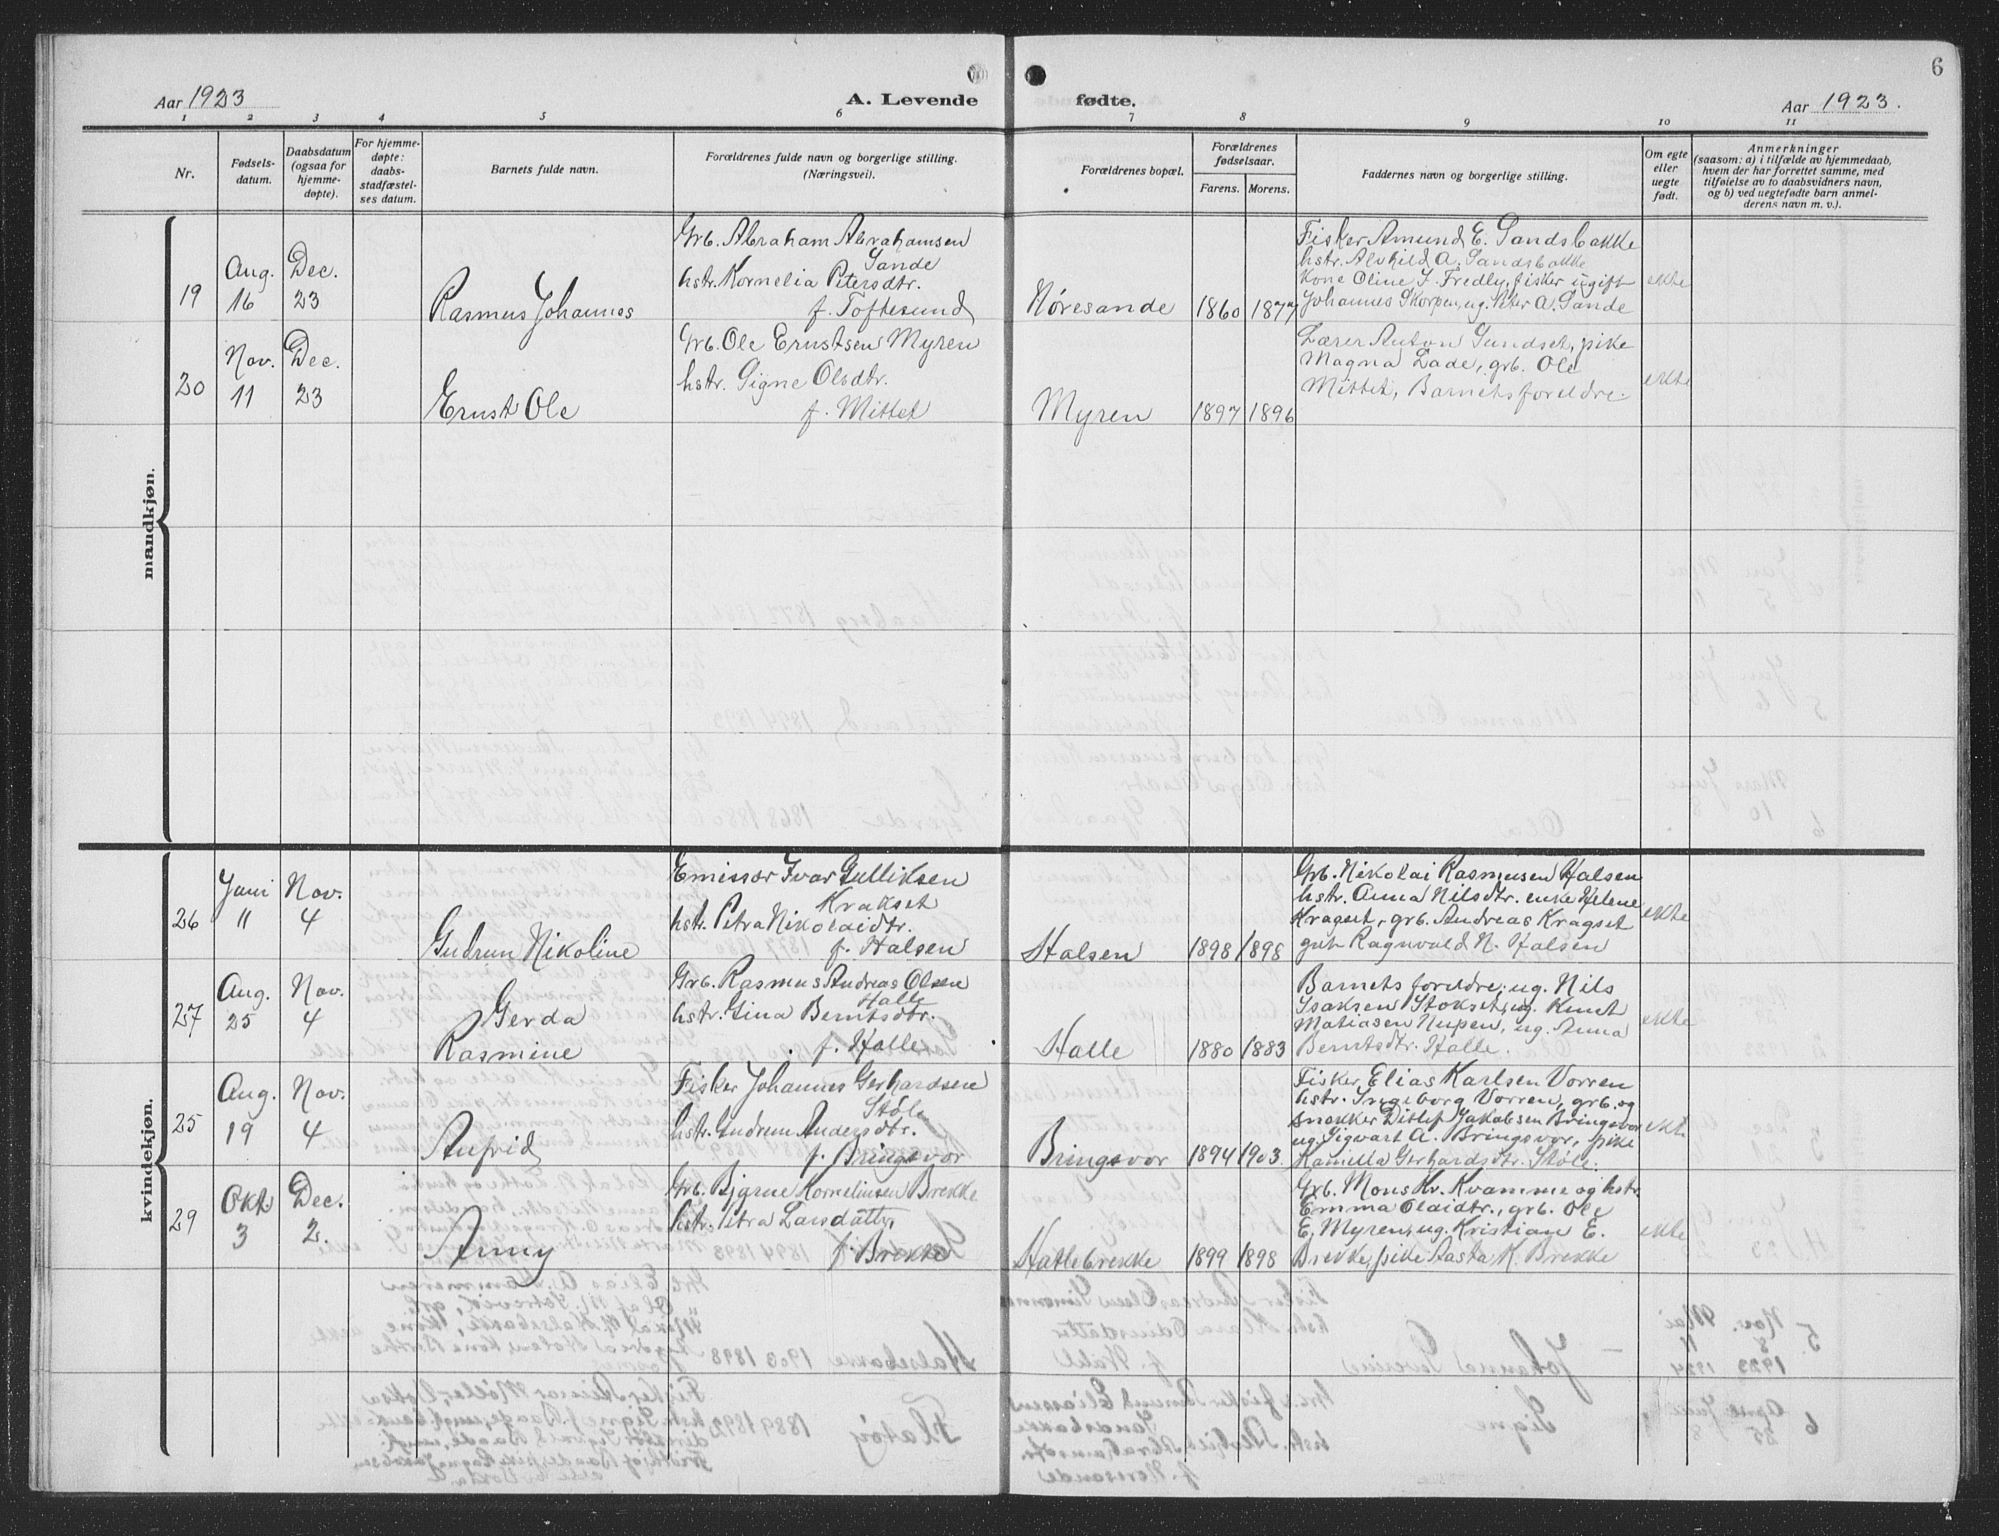 6
Aar 1923
A. Levende fødte.
Aar 1923.
1 2 3 4 5 6 7 8 9 10 11
Nr.
Fødsels-
datum.
Daabsdatum
(ogsaa for
hjemme-
døpte).
For hjemme-
døpte:
daabs-
stadfæstel-
ses datum.
Barnets fulde navn.
Forældrenes fulde navn og borgerlige stilling.
(Næringsvei).
Forældrenes bopæl.
Forældrenes
fødselsaar.
Farens. Morens.
Faddernes navn og borgerlige stilling.
Om egte
eller
uegte
født.
Anmerkninger
(saasom: a) i tilfælde av hjemmedaab,
hvem der har forrettet samme, med
tilføielse av to daabsvidners navn,
og b) ved uegtefødte barn anmel-
derens navn m. v.).
mandkjøn.
19
Aug.
16
Dec.
23
Rasmus Johannes
Grb. Abraham Abrahamsen
Sande
hstr. Kornelia Petersdtr.
f. Toftesund
Nøresande
1860 1877
Fisker Amund E. Sandsbakke
hstr. Alvhild A. Sandsbakke
Kone Oline J. Fredly, fisker ugift
Johannes Skorpen, ug. Peter A. Sande
ekte
20
Nov.
11
Dec.
23
Ernst Ole
Grb. Ole Ernstsen Myren
hstr. Signe Olsdtr.
f. Mittet
Myren
1897 1896
Lærer Anton Sundset, pike
Magna Lade, grb. Ole
Mittet, Barnets foreldre.
ekte
kvindekjøn.
26
Juni
11
Nov.
4
Gudrun Nikoline
Emissær Ivar Gulliksen
Krakset
hstr. Petra Nikolaidtr.
f. Halsen
Halsen
1898 1898
Grb. Nikolai Rasmusen Halsen
hstr. Anna Nilsdtr. enke Helene
Kragset, grb. Andreas Kragset
gut Ragnvald N. Halsen
ekte
27
Aug.
25
Nov.
4
Gerda
Rasmine
Grb. Rasmus Andreas Olsen
Halle
hstr. Gina Berntsdtr.
f. Halle
Halle
1880 1883
Barnets foreldre; ug. Nils
Isaksen Stokset, ug. Knut
Matiasen Nupen, ug. Anna
Berntsdtr. Halle.
ekte
25
Aug.
19
Nov.
4
Anfrid
Fisker Johannes Gerhardsen
Støle
hstr. Gudrun Andersdtr.
f. Bringsvor
Bringsvor
1894 1903.
Fisker Elias Karlsen Vorren
hstr. Ingeborg Vorren, grb. og
snekker Ditlef Jakobsen Bringsvor
ug. Sigvart A. Bringsvor, pike
Kamilla Gerhardsdtr. Støle.
ekte
29
Okt
3
Dec.
2.
Anny
Grb. Bjarne Korneliusen Brekke
hstr. Petra Larsdatter,
f. Brekke
Hatlebrekke
1899 1898
Grb. Mons Kr. Kvamme og hstr.
Emma Olaidtr., grb. Ole
E. Myren, ug. Kristian E.
Brekke, pike Aasta K. Brekke
ekte